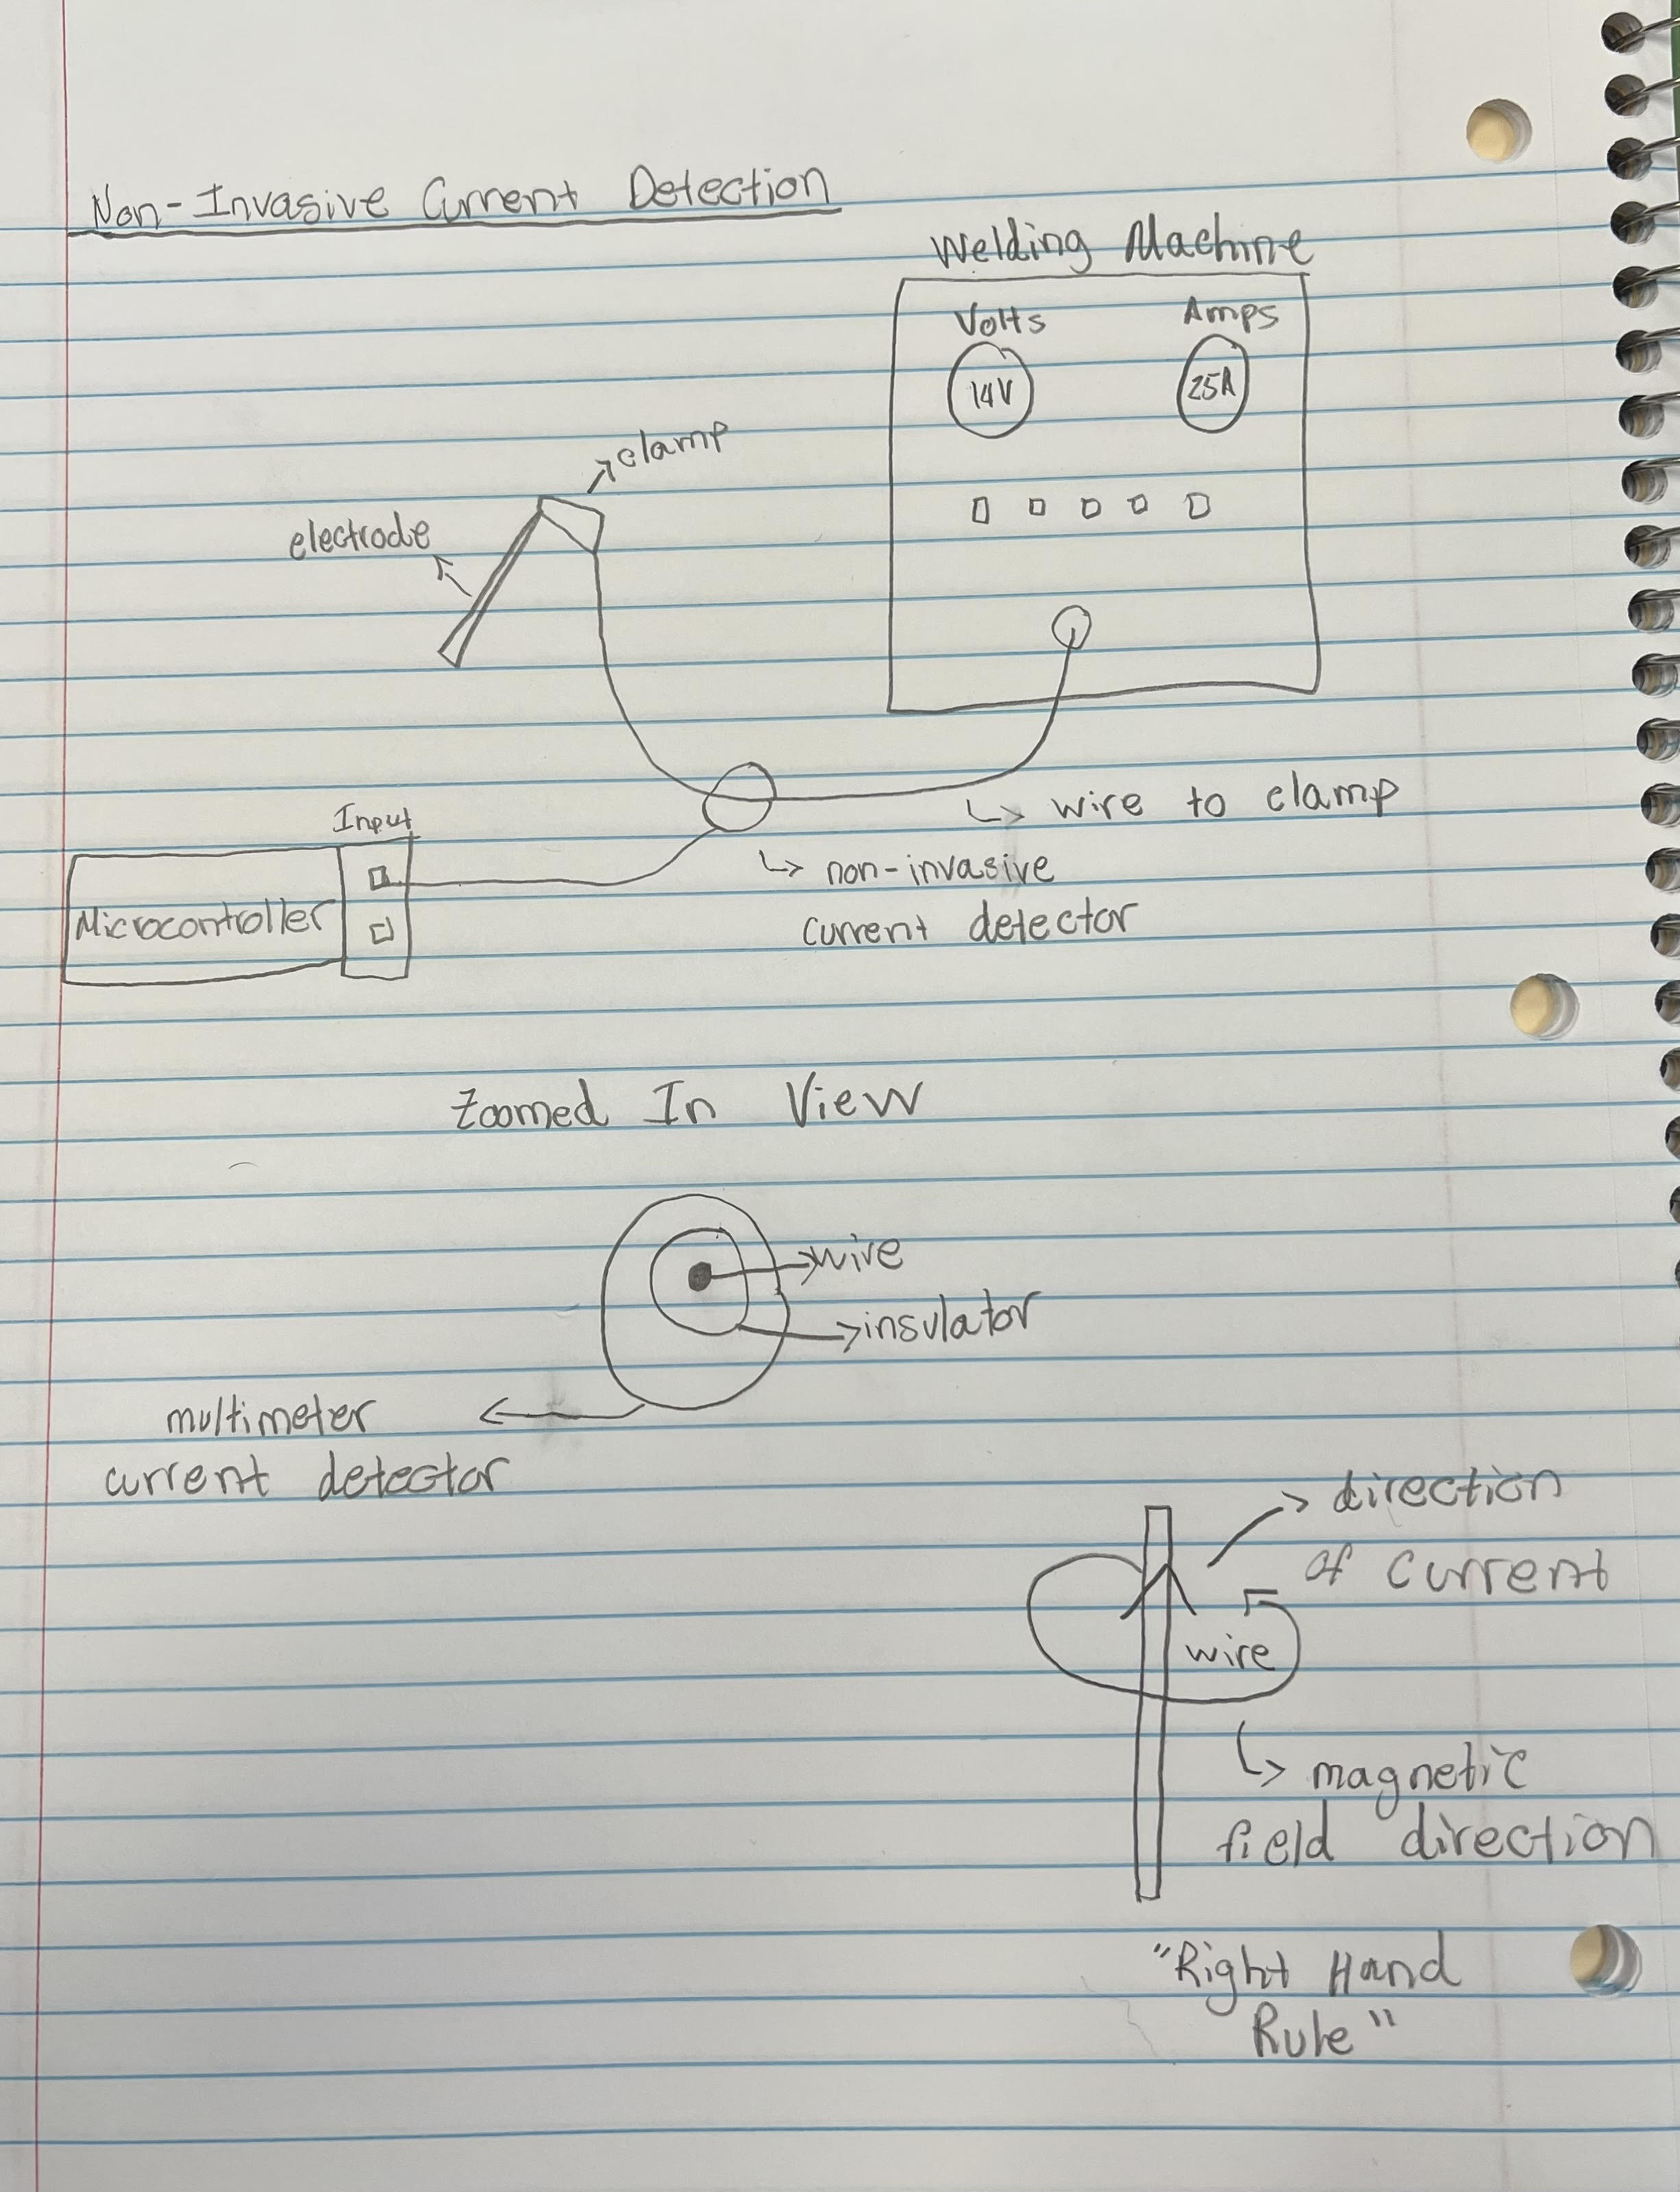 Non-Invasive Current Detection
Welding Machine
Volts
Amps
14V
25A
clamp
electrode
wire to clamp
Input
non-invasive
current detector
Microcontroller
Zoomed In View
wire
insulator
multimeter
current detector
direction
of current
wire
magnetic
field direction
"Right Hand
Rule"